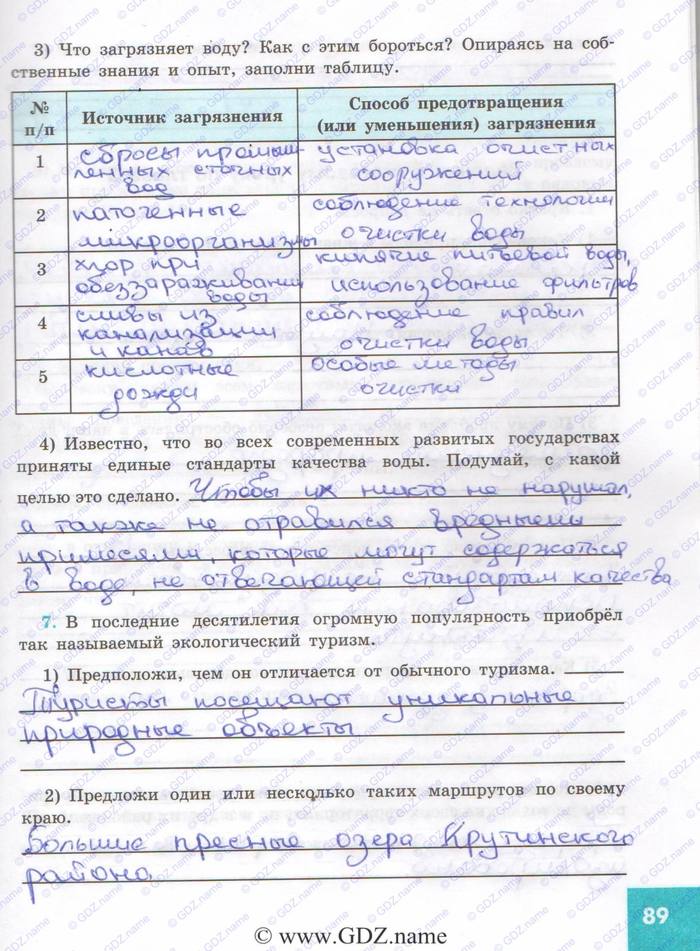 3) Что загрязняет воду? Как с этим бороться? Опираясь на соб-
ственные знания и опыт, заполни таблицу.
№ п/п
Источник загрязнения
Способ предотвращения
(или уменьшения) загрязнения
1
сбросы промыш-
ленных сточных
вод
установка очистных
сооружений
2
патогенные
микроорганизмы
соблюдение технологии
очистки воды
3
хлор при
обеззараживании
воды
кипячие питьевой воды,
использование фильтров
4
сливы из
канализации
и канав
соблюдение правил
очистки воды
5
кислотные
дожди
особые методы
очистки
4) Известно, что во всех современных развитых государствах
приняты единые стандарты качества воды. Подумай, с какой
целью это сделано. Чтобы их никто не нарушал,
а также не отравился вредными
примесями, которые могут содержаться
в воде, не отвечающей стандартам качества
7. В последние десятилетия огромную популярность приобрёл
так называемый экологический туризм.
1) Предположи, чем он отличается от обычного туризма.
Туристы посещают уникальные
природные объекты
2) Предложи один или несколько таких маршрутов по своему
краю.
Большие пресные озера Крутинского
района
89
© www.GDZ.name